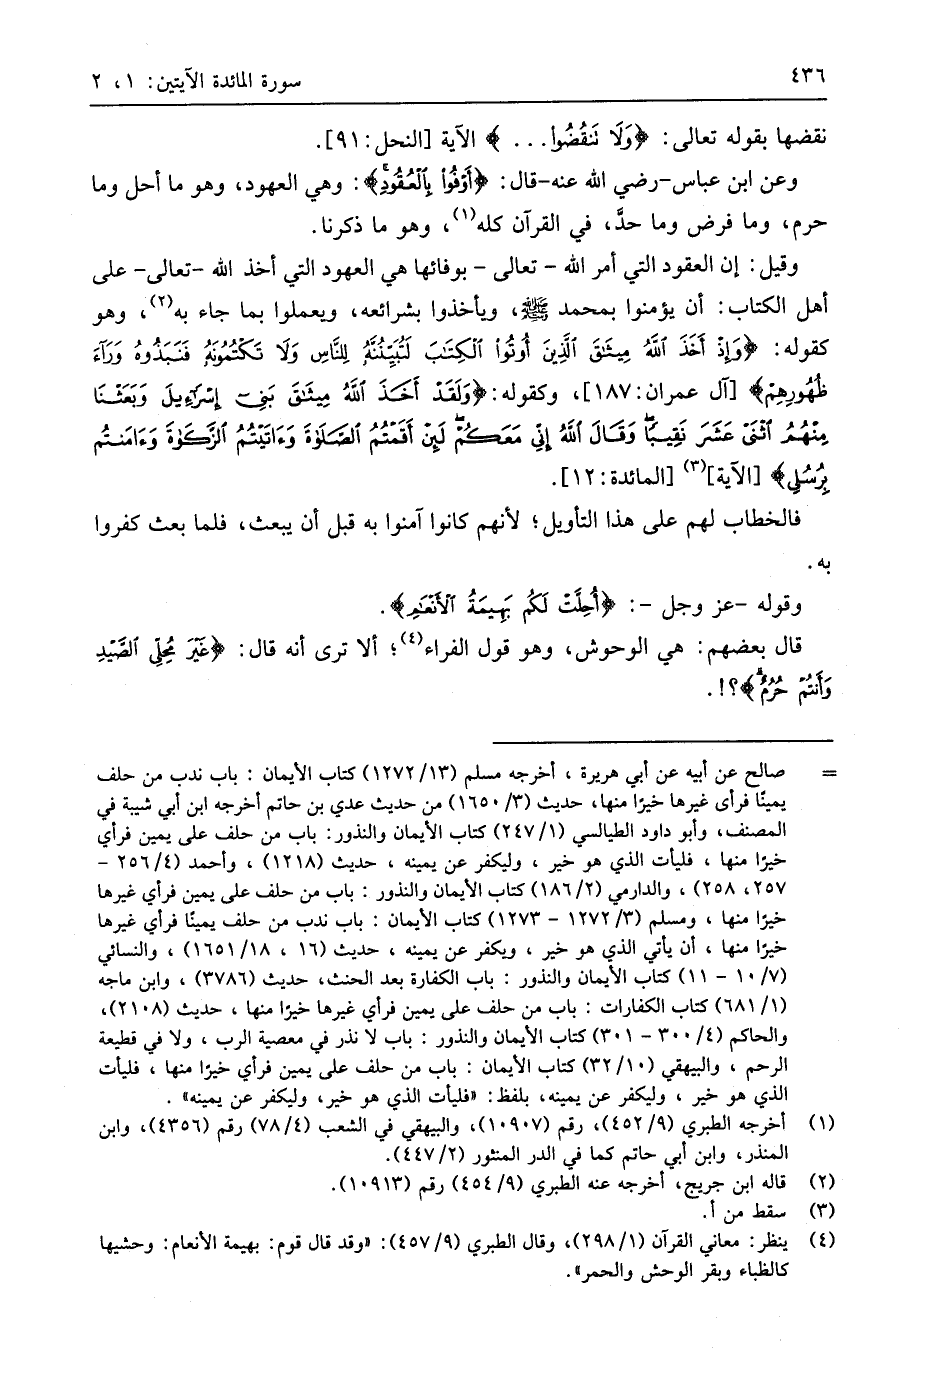 ٤٣٦
سورة المائدة الآيتين: ١، ٢
نقضها بقوله تعالى: ﴿وَلَا نَنقُضُوا۟ . . . ﴾ الآية [النحل: ٩١].
وعن ابن عباس-رضي الله عنه-قال: ﴿أَوْفُوا۟ بِٱلْعُقُودِ﴾: وهي العهود، وهو ما أحل وما
حرم، وما فرض وما حدَّ، في القرآن كله(١)، وهو ما ذكرنا.
وقيل: إن العقود التي أمر الله - تعالى - بوفائها هي العهود التي أخذ الله -تعالى- على
أهل الكتاب: أن يؤمنوا بمحمد ﷺ، ويأخذوا بشرائعه، ويعملوا بما جاء به(٢)، وهو
كقوله: ﴿وَإِذْ أَخَذَ ٱللَّهُ مِيثَٰقَ ٱلَّذِينَ أُوتُوا۟ ٱلْكِتَٰبَ لَتُبَيِّنُنَّهُۥ لِلنَّاسِ وَلَا تَكْتُمُونَهُۥ فَنَبَذُوهُ وَرَآءَ
ظُهُورِهِمْ﴾ [آل عمران: ١٨٧]، وكقوله: ﴿وَلَقَدْ أَخَذَ ٱللَّهُ مِيثَٰقَ بَنِىٓ إِسْرَٰٓءِيلَ وَبَعَثْنَا
مِنْهُمُ ٱثْنَىْ عَشَرَ نَقِيبًا ۖ وَقَالَ ٱللَّهُ إِنِّى مَعَكُمْ ۖ لَئِنْ أَقَمْتُمُ ٱلصَّلَوٰةَ وَءَاتَيْتُمُ ٱلزَّكَوٰةَ وَءَامَنتُم
بِرُسُلِى﴾ [الآية](٣) [المائدة: ١٢].
فالخطاب لهم على هذا التأويل؛ لأنهم كانوا آمنوا به قبل أن يبعث، فلما بعث كفروا
به.
وقوله -عز وجل -: ﴿أُحِلَّتْ لَكُم بَهِيمَةُ ٱلْأَنْعَٰمِ﴾.
قال بعضهم: هي الوحوش، وهو قول الفراء(٤)؛ ألا ترى أنه قال: ﴿غَيْرَ مُحِلِّى ٱلصَّيْدِ
وَأَنتُمْ حُرُمٌ ۗ﴾؟!.
= صالح عن أبيه عن أبي هريرة ، أخرجه مسلم (١٢٧٢/١٣) كتاب الأيمان : باب ندب من حلف
يمينًا فرأى غيرها خيرًا منها، حديث (١٦٥٠/٣) من حديث عدي بن حاتم أخرجه ابن أبي شيبة في
المصنف، وأبو داود الطيالسي (٢٤٧/١) كتاب الأيمان والنذور: باب من حلف على يمين فرأي
خيرًا منها ، فليأت الذي هو خير ، وليكفر عن يمينه ، حديث (١٢١٨) ، وأحمد (٢٥٦/٤ -
٢٥٧، ٢٥٨) ، والدارمي (١٨٦/٢) كتاب الأيمان والنذور : باب من حلف على يمين فرأي غيرها
خيرًا منها ، ومسلم (١٢٧٢/٣ - ١٢٧٣) كتاب الأيمان : باب ندب من حلف يمينًا فرأي غيرها
خيرًا منها ، أن يأتي الذي هو خير ، ويكفر عن يمينه ، حديث (١٦ ، ١٦٥١/١٨) ، والنسائي
(١٠/٧ - ١١) كتاب الأيمان والنذور : باب الكفارة بعد الحنث، حديث (٣٧٨٦) ، وابن ماجه
(٦٨١/١) كتاب الكفارات : باب من حلف على يمين فرأي غيرها خيرًا منها ، حديث (٢١٠٨)،
والحاكم (٣٠٠/٤ - ٣٠١) كتاب الأيمان والنذور : باب لا نذر في معصية الرب ، ولا في قطيعة
الرحم ، والبيهقي (٣٢/١٠) كتاب الأيمان : باب من حلف على يمين فرأي خيرًا منها ، فليأت
الذي هو خير ، وليكفر عن يمينه، بلفظ: «فليأت الذي هو خير، وليكفر عن يمينه» .
(١) أخرجه الطبري (٤٥٢/٩)، رقم (١٠٩٠٧)، والبيهقي في الشعب (٧٨/٤) رقم (٤٣٥٦)، وابن
المنذر، وابن أبي حاتم كما في الدر المنثور (٤٤٧/٢).
(٢) قاله ابن جريج، أخرجه عنه الطبري (٤٥٤/٩) رقم (١٠٩١٣).
(٣) سقط من أ.
(٤) ينظر: معاني القرآن (٢٩٨/١)، وقال الطبري (٤٥٧/٩): «وقد قال قوم: بهيمة الأنعام: وحشيها
كالظباء وبقر الوحش والحمر».